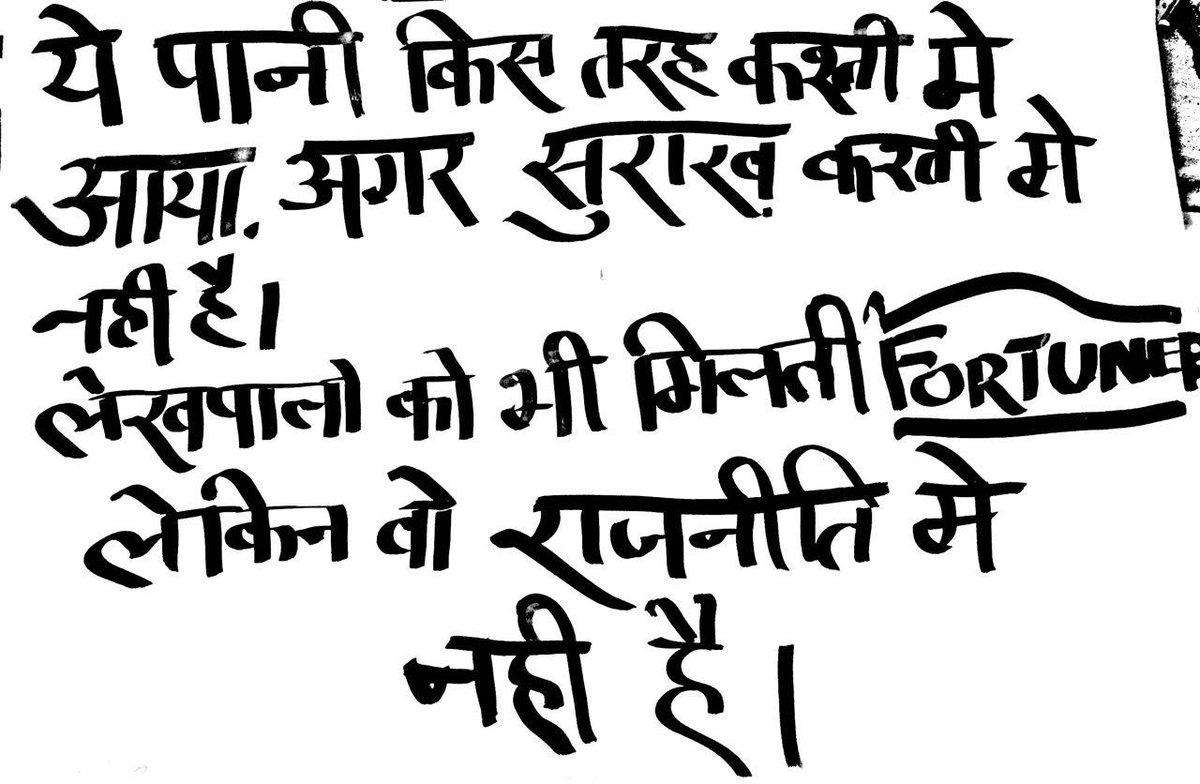 ये पानी किस तरह कश्ती मे
आया. अगर सुराख़ कश्ती मे
नही है।
लेखपालो को भी मिलती FORTUNER
लेकिन वो राजनीति मे
नही है।